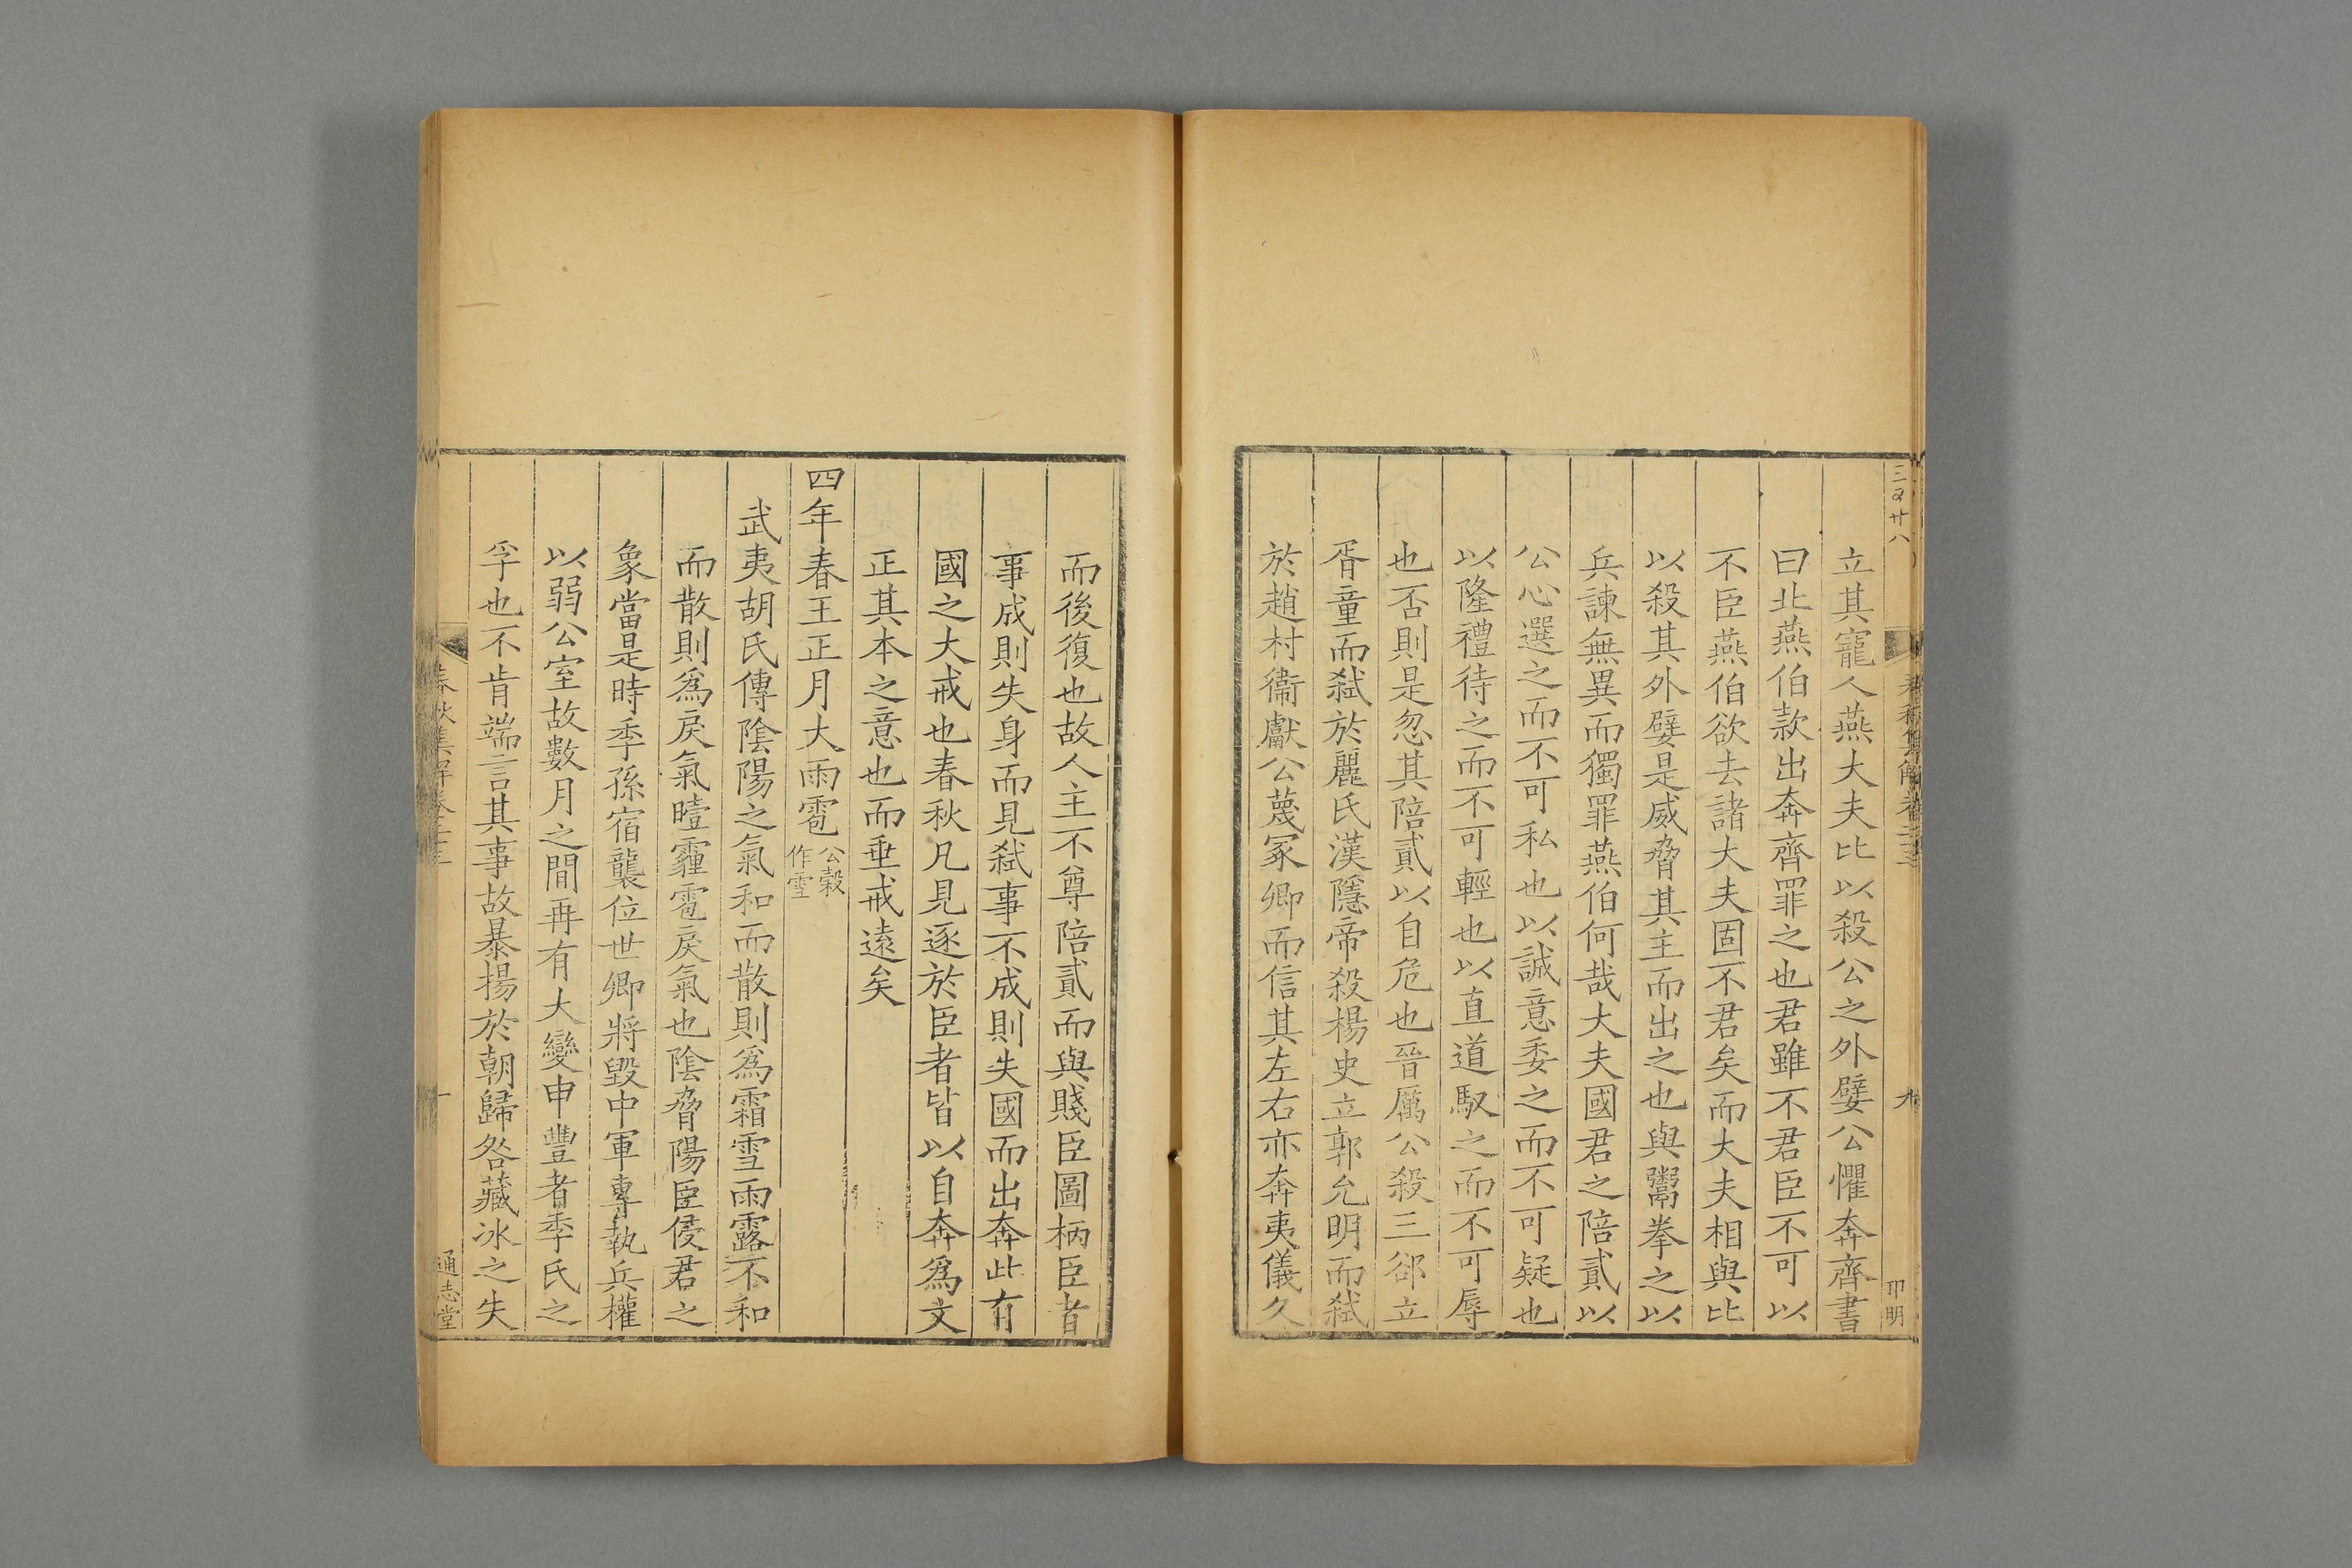 三百廿八
春秋集解卷二三
九
卩明
立其寵人燕大夫比以殺公之外嬖公懼奔齊書
曰北燕伯款出奔齊罪之也君雖不君臣不可以
不臣燕伯欲去諸大夫固不君矣而大夫相與比
以殺其外嬖是威脅其主而出之也與鬻拳之以
兵諫無異而獨罪燕伯何哉大夫國君之陪貳以
公心選之而不可私也以誠意委之而不可疑也
以隆禮待之而不可輕也以直道馭之而不可辱
也否則是忽其陪貳以自危也晉厲公殺三郤立
胥童而弑於麗氏漢隱帝殺楊史立郭允明而弑
於趙村衞獻公蔑冢卿而信其左右亦奔夷儀久
而後復也故人主不尊陪貳而與賤臣圖柄臣者
事成則失身而見弑事不成則失國而出奔此有
國之大戒也春秋凡見逐於臣者皆以自奔爲文
正其本之意也而垂戒遠矣
四年春王正月大雨雹公穀作雪
武夷胡氏傳陰陽之氣和而散則爲霜雪雨露不和
而散則爲戾氣曀霾雹戾氣也陰脅陽臣侵君之
象當是時季孫宿襲位世卿將毀中軍專執兵權
以弱公室故數月之間再有大變申豐者季氏之
孚也不肯端言其事故暴揚於朝歸咎藏冰之失
春秋集解卷二三
通志堂